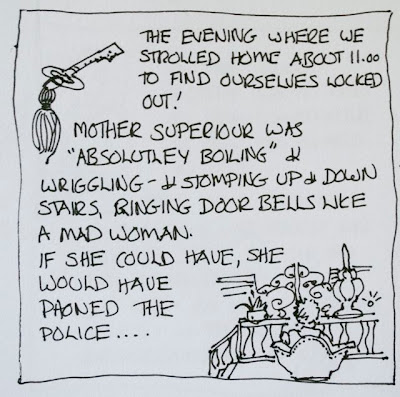 THE EVENING WHERE WE
STROLLED HOME ABOUT 11.00
TO FIND OURSELVES LOCKED
OUT!
MOTHER SUPERIOUR WAS
"ABSOLUTLEY BOILING" &
WRIGGLING - & STOMPING UP & DOWN
STAIRS, RINGING DOOR BELLS LIKE
A MAD WOMAN.
IF SHE COULD HAVE, SHE
WOULD HAVE
PHONED THE
POLICE....